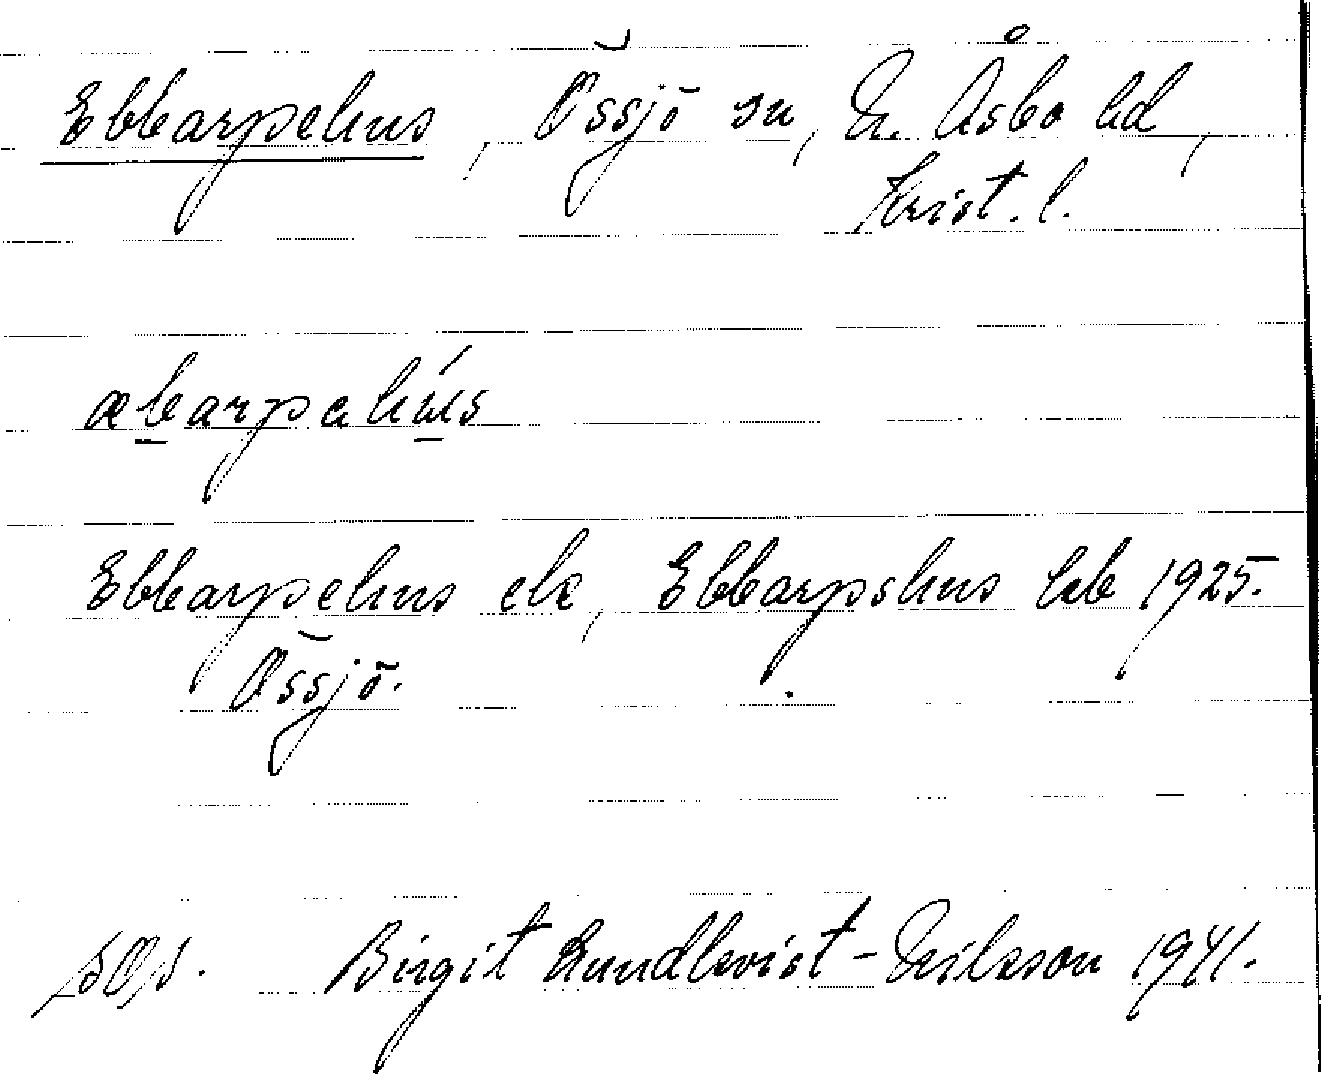 Ebbarpehus, Össjö sn, N. Åsbo hd,
Krist. l.
æbarpahús
Ebbarpehus ek, Ebbarpshus hb 1925.
Össjö.
Birgit Lundkvist-Nilsson 1941.